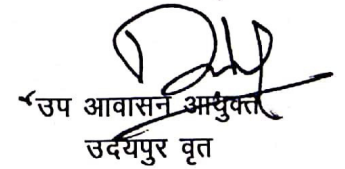 उप आवासन आयुक्त
उदयपुर वृत